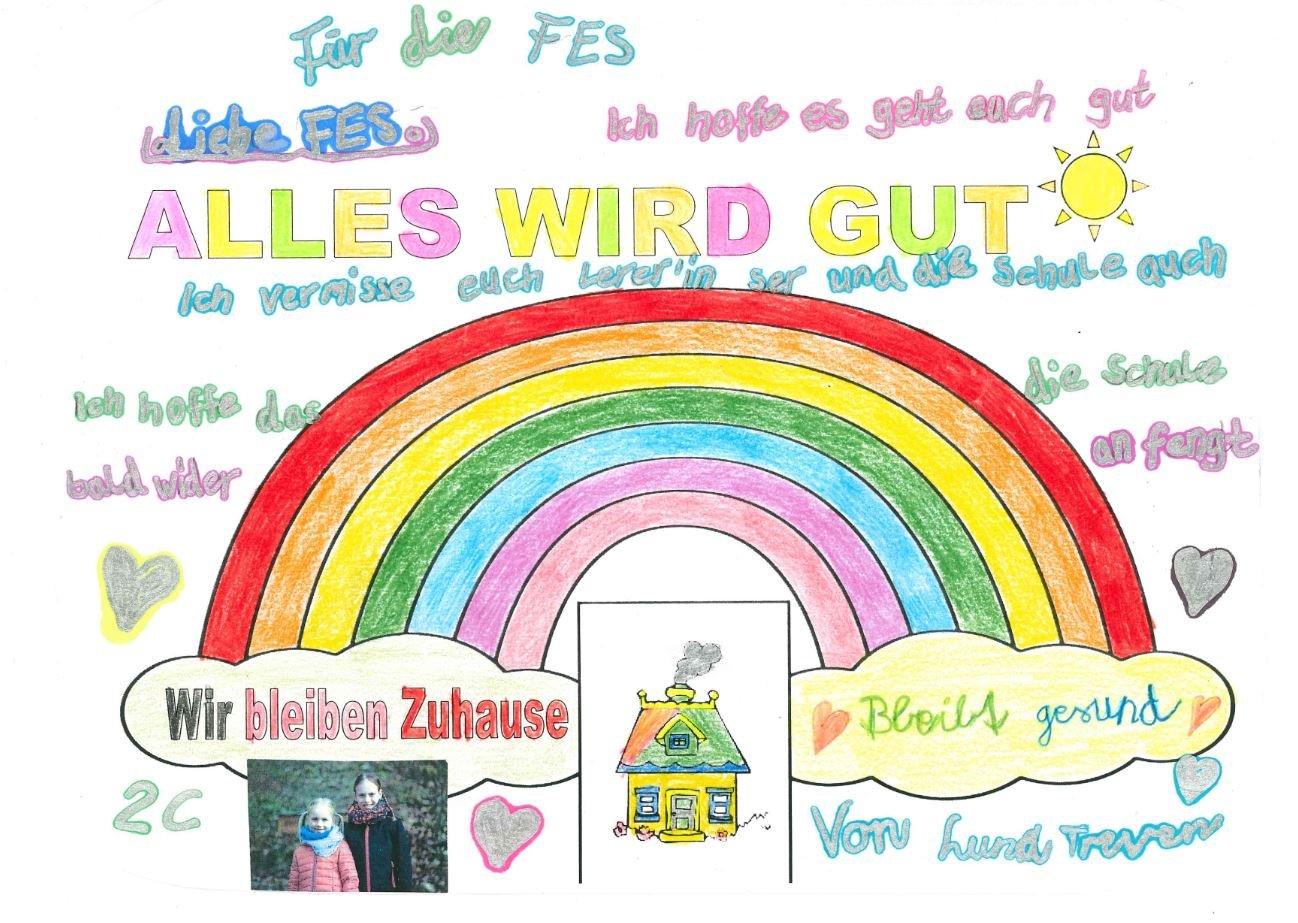 Für die FES
Liebe FES
Ich hoffe es geht euch gut
ALLES WIRD GUT
ich vermisse euch Lerer'in ser und die Schule auch
Ich hoffe das die Schule
bald wider an fengt
Wir bleiben Zuhause
Bleibt gesund
2C
Von